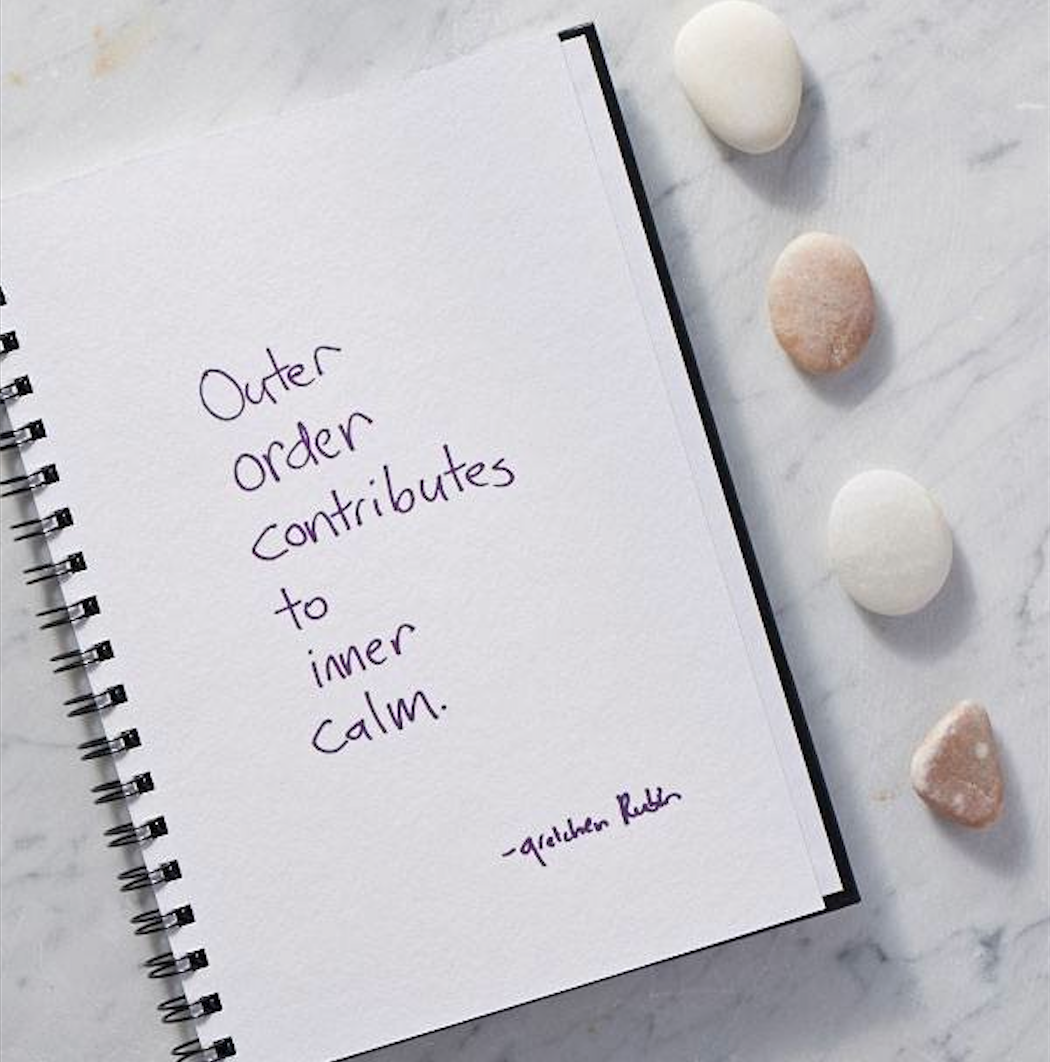 Outer
order
contributes
to
inner
calm.
-gretchen Rubin